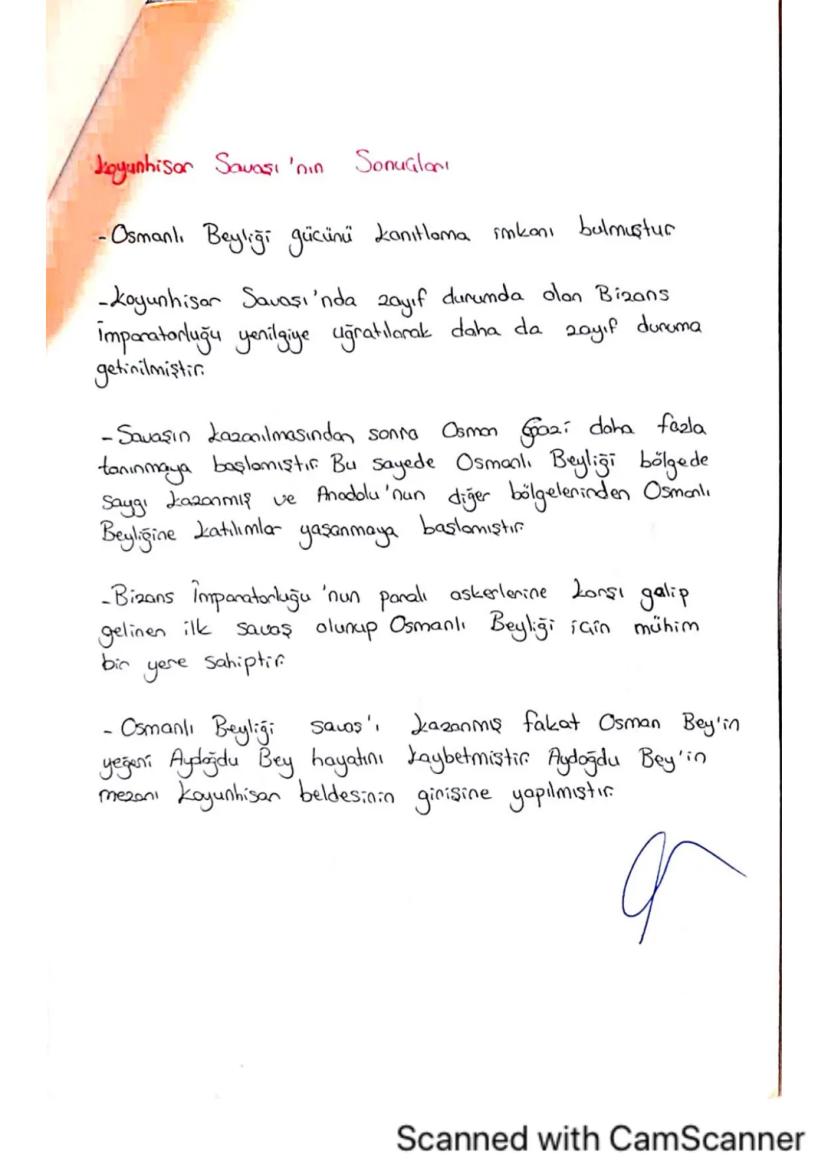 Koyunhisar Savaşı'nın Sonuçları
-Osmanlı Beyliği gücünü kanıtlama imkanı bulmuştur
-Koyunhisar Savaşı'nda zayıf durumda olan Bizans
İmparatorluğu yenilgiye uğratılarak daha da zayıf duruma
getirilmiştir.
-Savaşın kazanılmasından sonra Osman Gazi daha fazla
tanınmaya başlamıştır. Bu sayede Osmanlı Beyliği bölgede
saygı kazanmış ve Anadolu'nun diğer bölgelerinden Osmanlı
Beyliğine katılımlar yaşanmaya başlamıştır.
-Bizans İmparatorluğu'nun paralı askerlerine karşı galip
gelinen ilk savaş olunup Osmanlı Beyliği için mühim
bir yere sahiptir.
- Osmanlı Beyliği savaş'ı kazanmış fakat Osman Bey'in
yeğeni Aydoğdu Bey hayatını kaybetmiştir. Aydoğdu Bey'in
mezarı Koyunhisar beldesinin girişine yapılmıştır.
Scanned with CamScanner